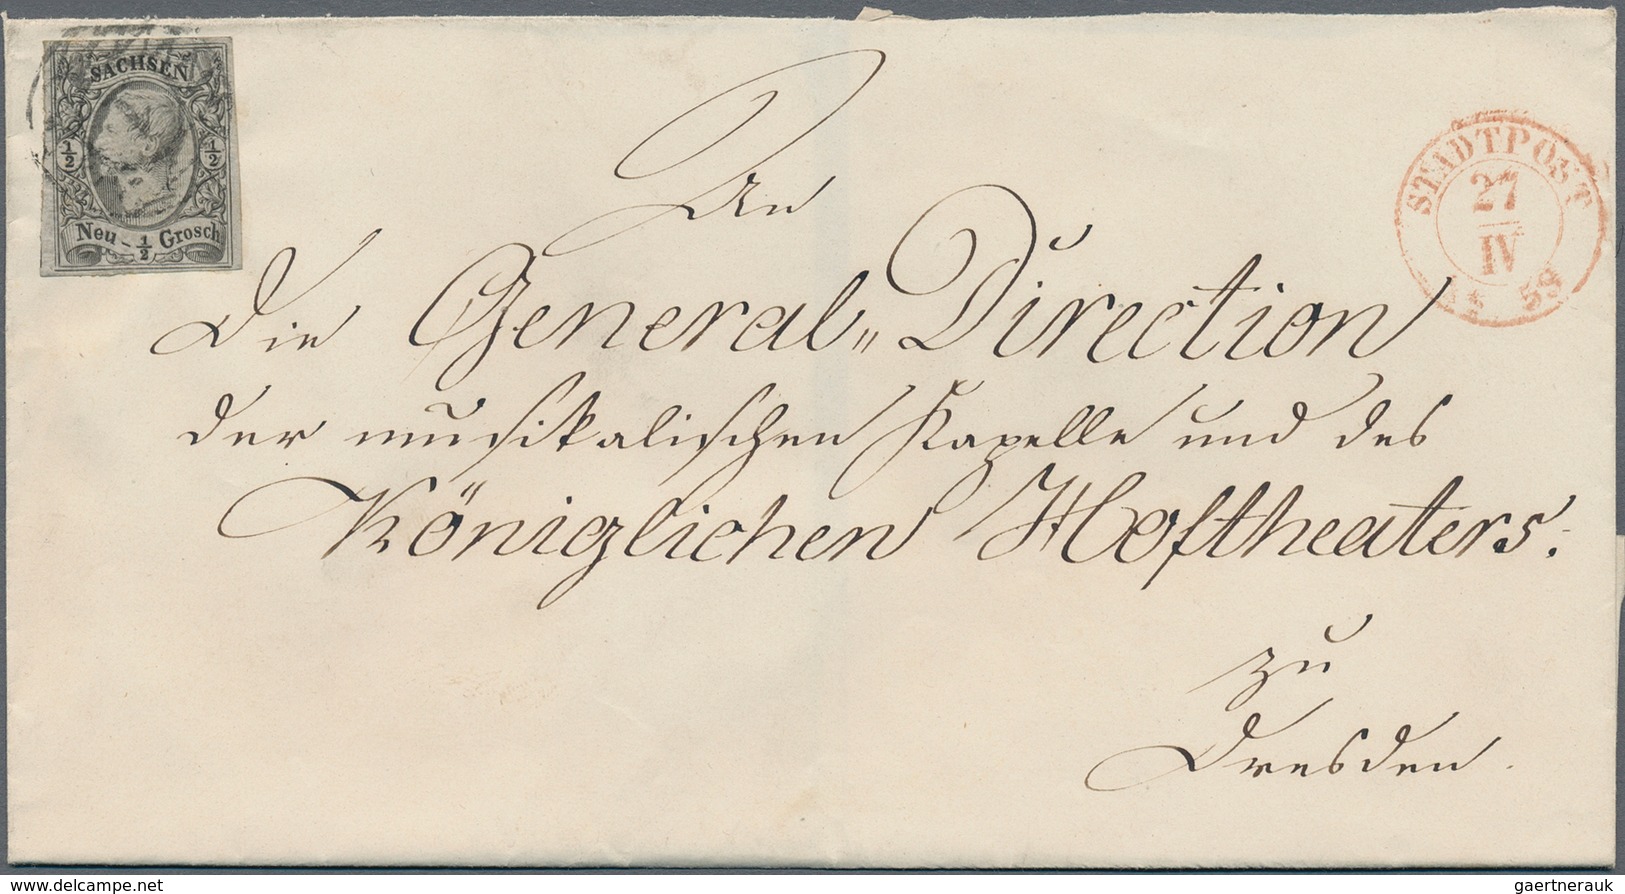 SACHSEN
1/2 1/2
Neu - 1/2 Grosch
STADTPOST
27
IV
58
An
Die General„Direction
der musikalischen Kapelle und des
Königlichen Hoftheaters.
zu
Dresden.
www.delcampe.net
gaertnerauk